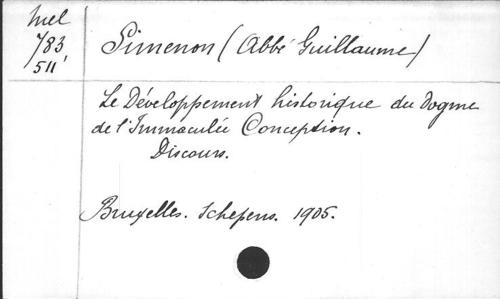 Mel
783
511'
Simenon (Abbé Guillaume)
Le Développement historique du Dogme
de l'Immaculée Conception.
Discours.
Bruxelles. Schepens. 1905.